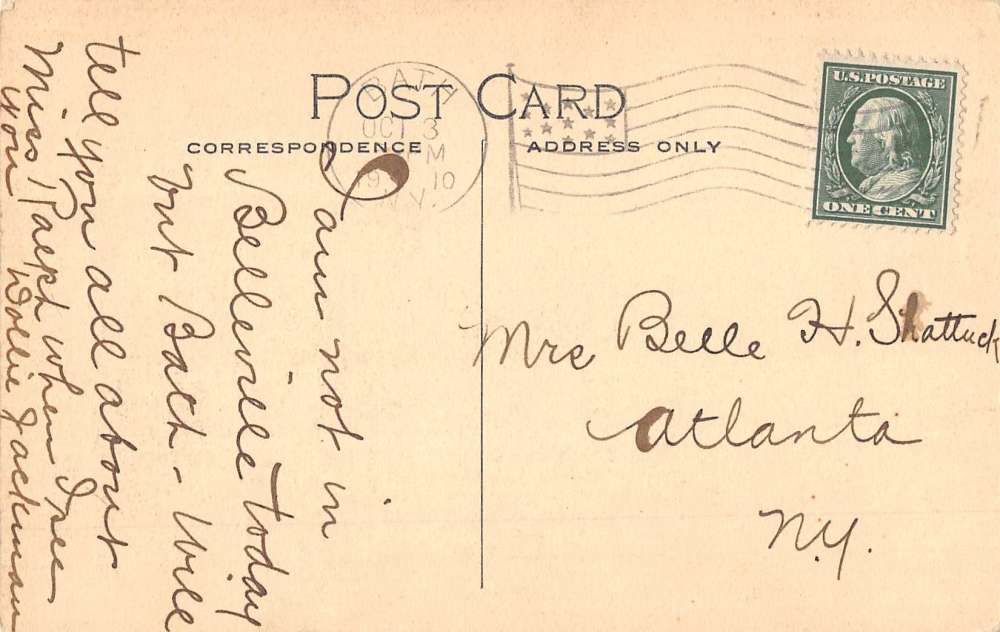 POST CARD
CORRESPONDENCE
ADDRESS ONLY
BATH
OCT 3
PM
1910
N.Y.
U.S. POSTAGE
ONE CENT
I am not in
Belleville today
but Bath - Will
tell you all about
Miss Paepk when I see
you Dollie Jackman
Mrs Belle H. Shattuck
Atlanta
N.Y.